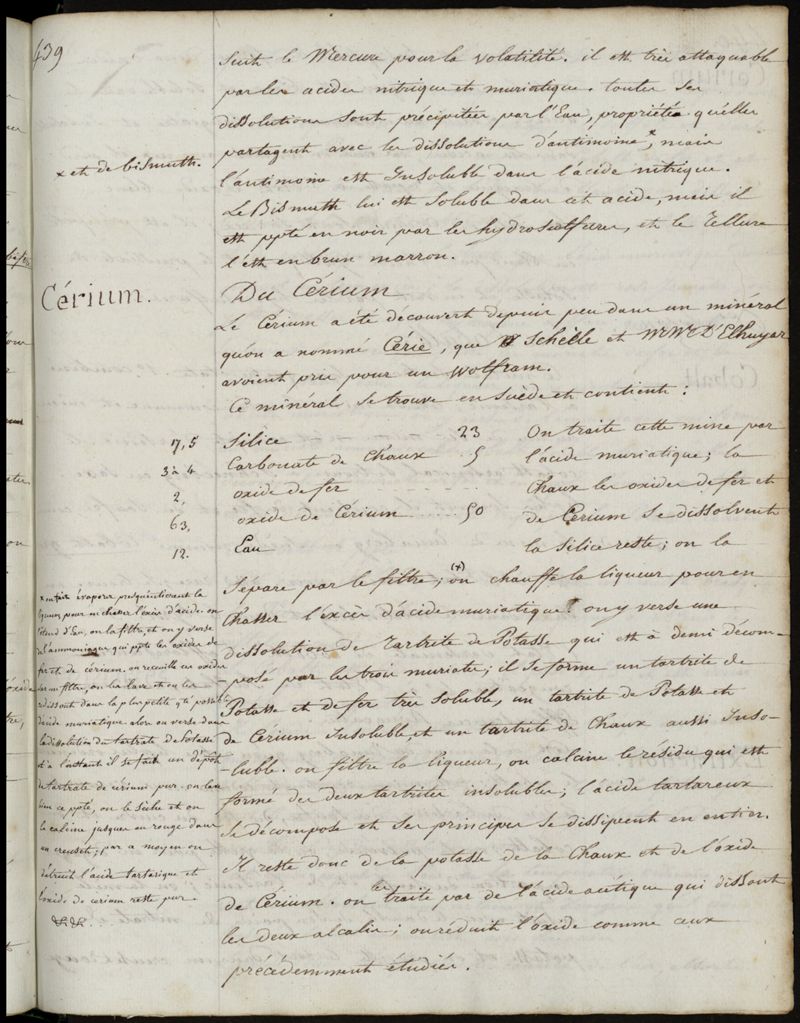 439
suit le Mercure pour la volatilité. il est très attaquable
par les acides nitrique et muriatique. toutes ses
dissolutions sont précipitées par l'Eau, propriétés qu'elles
partagent avec les dissolutions d'antimoine,* mais
x et de bismuth.
l'antimoine est Insoluble dans l'acide nitrique.
Le Bismuth lui est soluble dans cet acide, mais il
est ppté en noir par les hydrosulfures, et le Tellure
l'est en brun marron.
Cérium.
Du Cérium
Le Cérium a été découvert depuis peu dans un minéral
qu'on a nommé Cérie, que Schéele et MrMr D'Elhuyar
avoient pris pour un Wolfram.
Ce minéral se trouve en Suède et contient :
17,5 Silice 23 On traite cette mine par
3 à 4 Carbonate de Chaux 5 l'acide muriatique ; la
2, oxide de fer Chaux les oxides de fer et
63, oxide de Cérium 50 de Cerium se dissolvent
12. Eau la Silice reste ; on la
sépare par le filtre ; (x) on chauffe la liqueur pour en
Chasser l'excès d'acide muriatique. on y verse une
dissolution de Tartrite de Potasse qui est à demi décom-
-posé par les trois muriates ; il se forme un tartrite de
Potasse et de fer très soluble, un tartrite de Potasse et
de Cerium Insoluble, et un tartrite de Chaux aussi Inso-
-luble. on filtre la liqueur, on calcine le résidu qui est
formé des deux tartrites insolubles ; l'acide tartareux
se décompose et ses principes se dissipent en entier.
Il reste donc de la potasse de la Chaux et de l'oxide
de Cérium. on les traite par de l'acide acétique qui dissout
les deux alcalis ; on réduit l'oxide comme ceux
précédemment étudiés.
x on fait évaporer presqu'entièrement la
liqueur pour en chasser l'excès d'acide. on
l'étend d'Eau, on la filtre, et on y verse
de l'ammoniaque qui ppte les oxides de
fer et de cérium. on recueille ces oxides
sur un filtre, on les lave et on les
redissout dans la plus petite qté possible
d'acide muriatique alors on verse dans
la dissolution du tartrate de Potasse
et à l'instant il se fait un dépôt
de tartrate de cérium pur. on lave
bien ce ppté, on le sèche et on
le calcine jusques au rouge dans
un creuset ; par ce moyen on
détruit l'acide tartarique et
l'oxide de cerium reste pur.